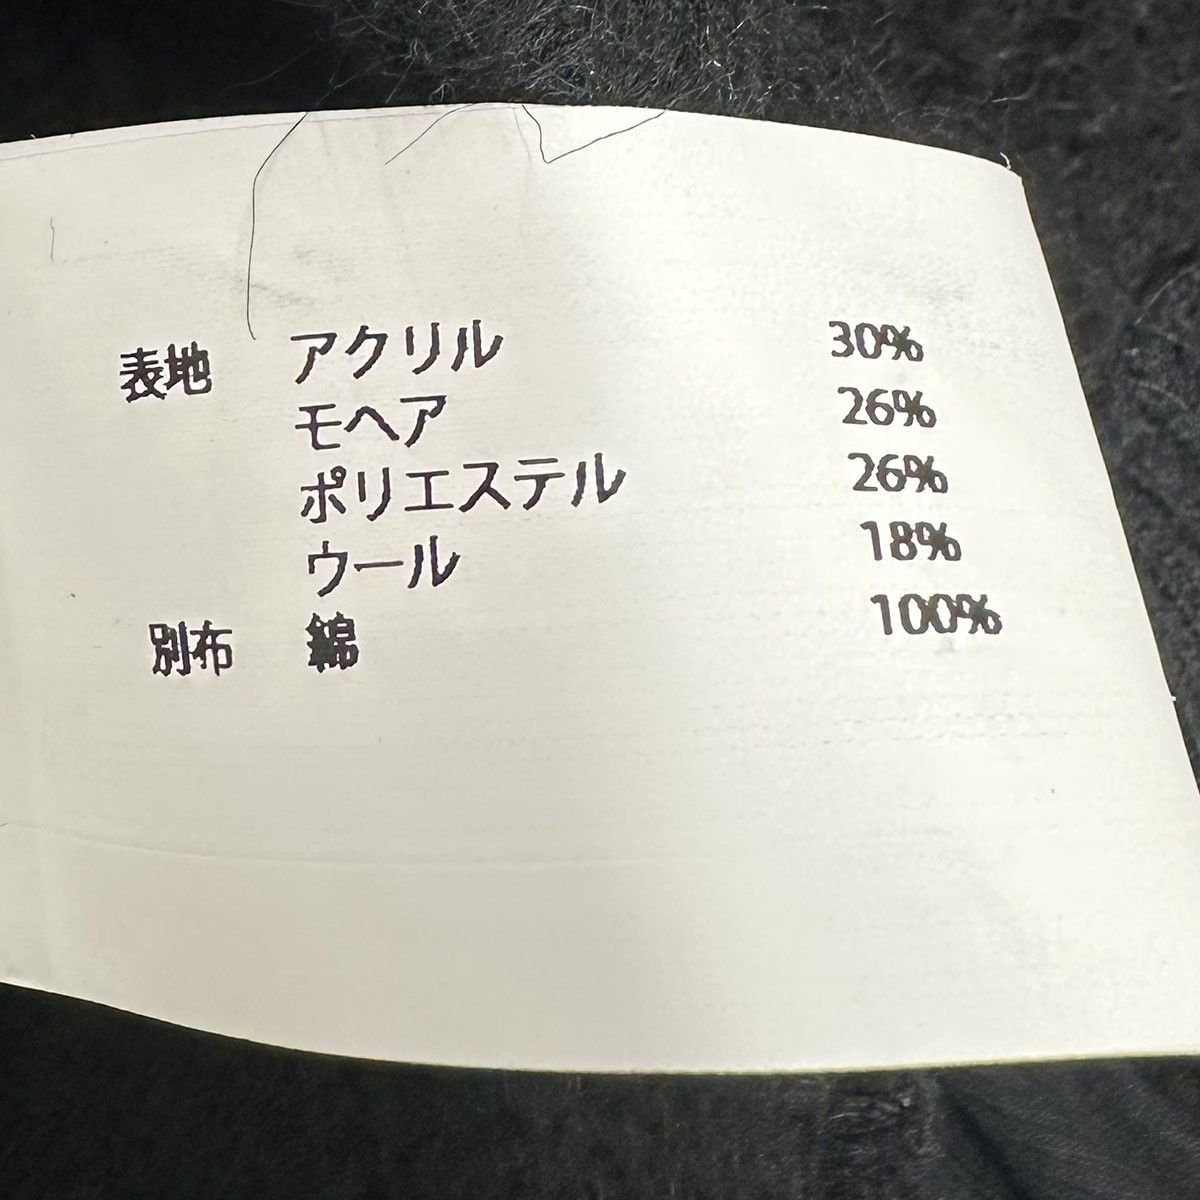 表地 アクリル 30%
モヘア 26%
ポリエステル 26%
ウール 18%
別布 綿 100%